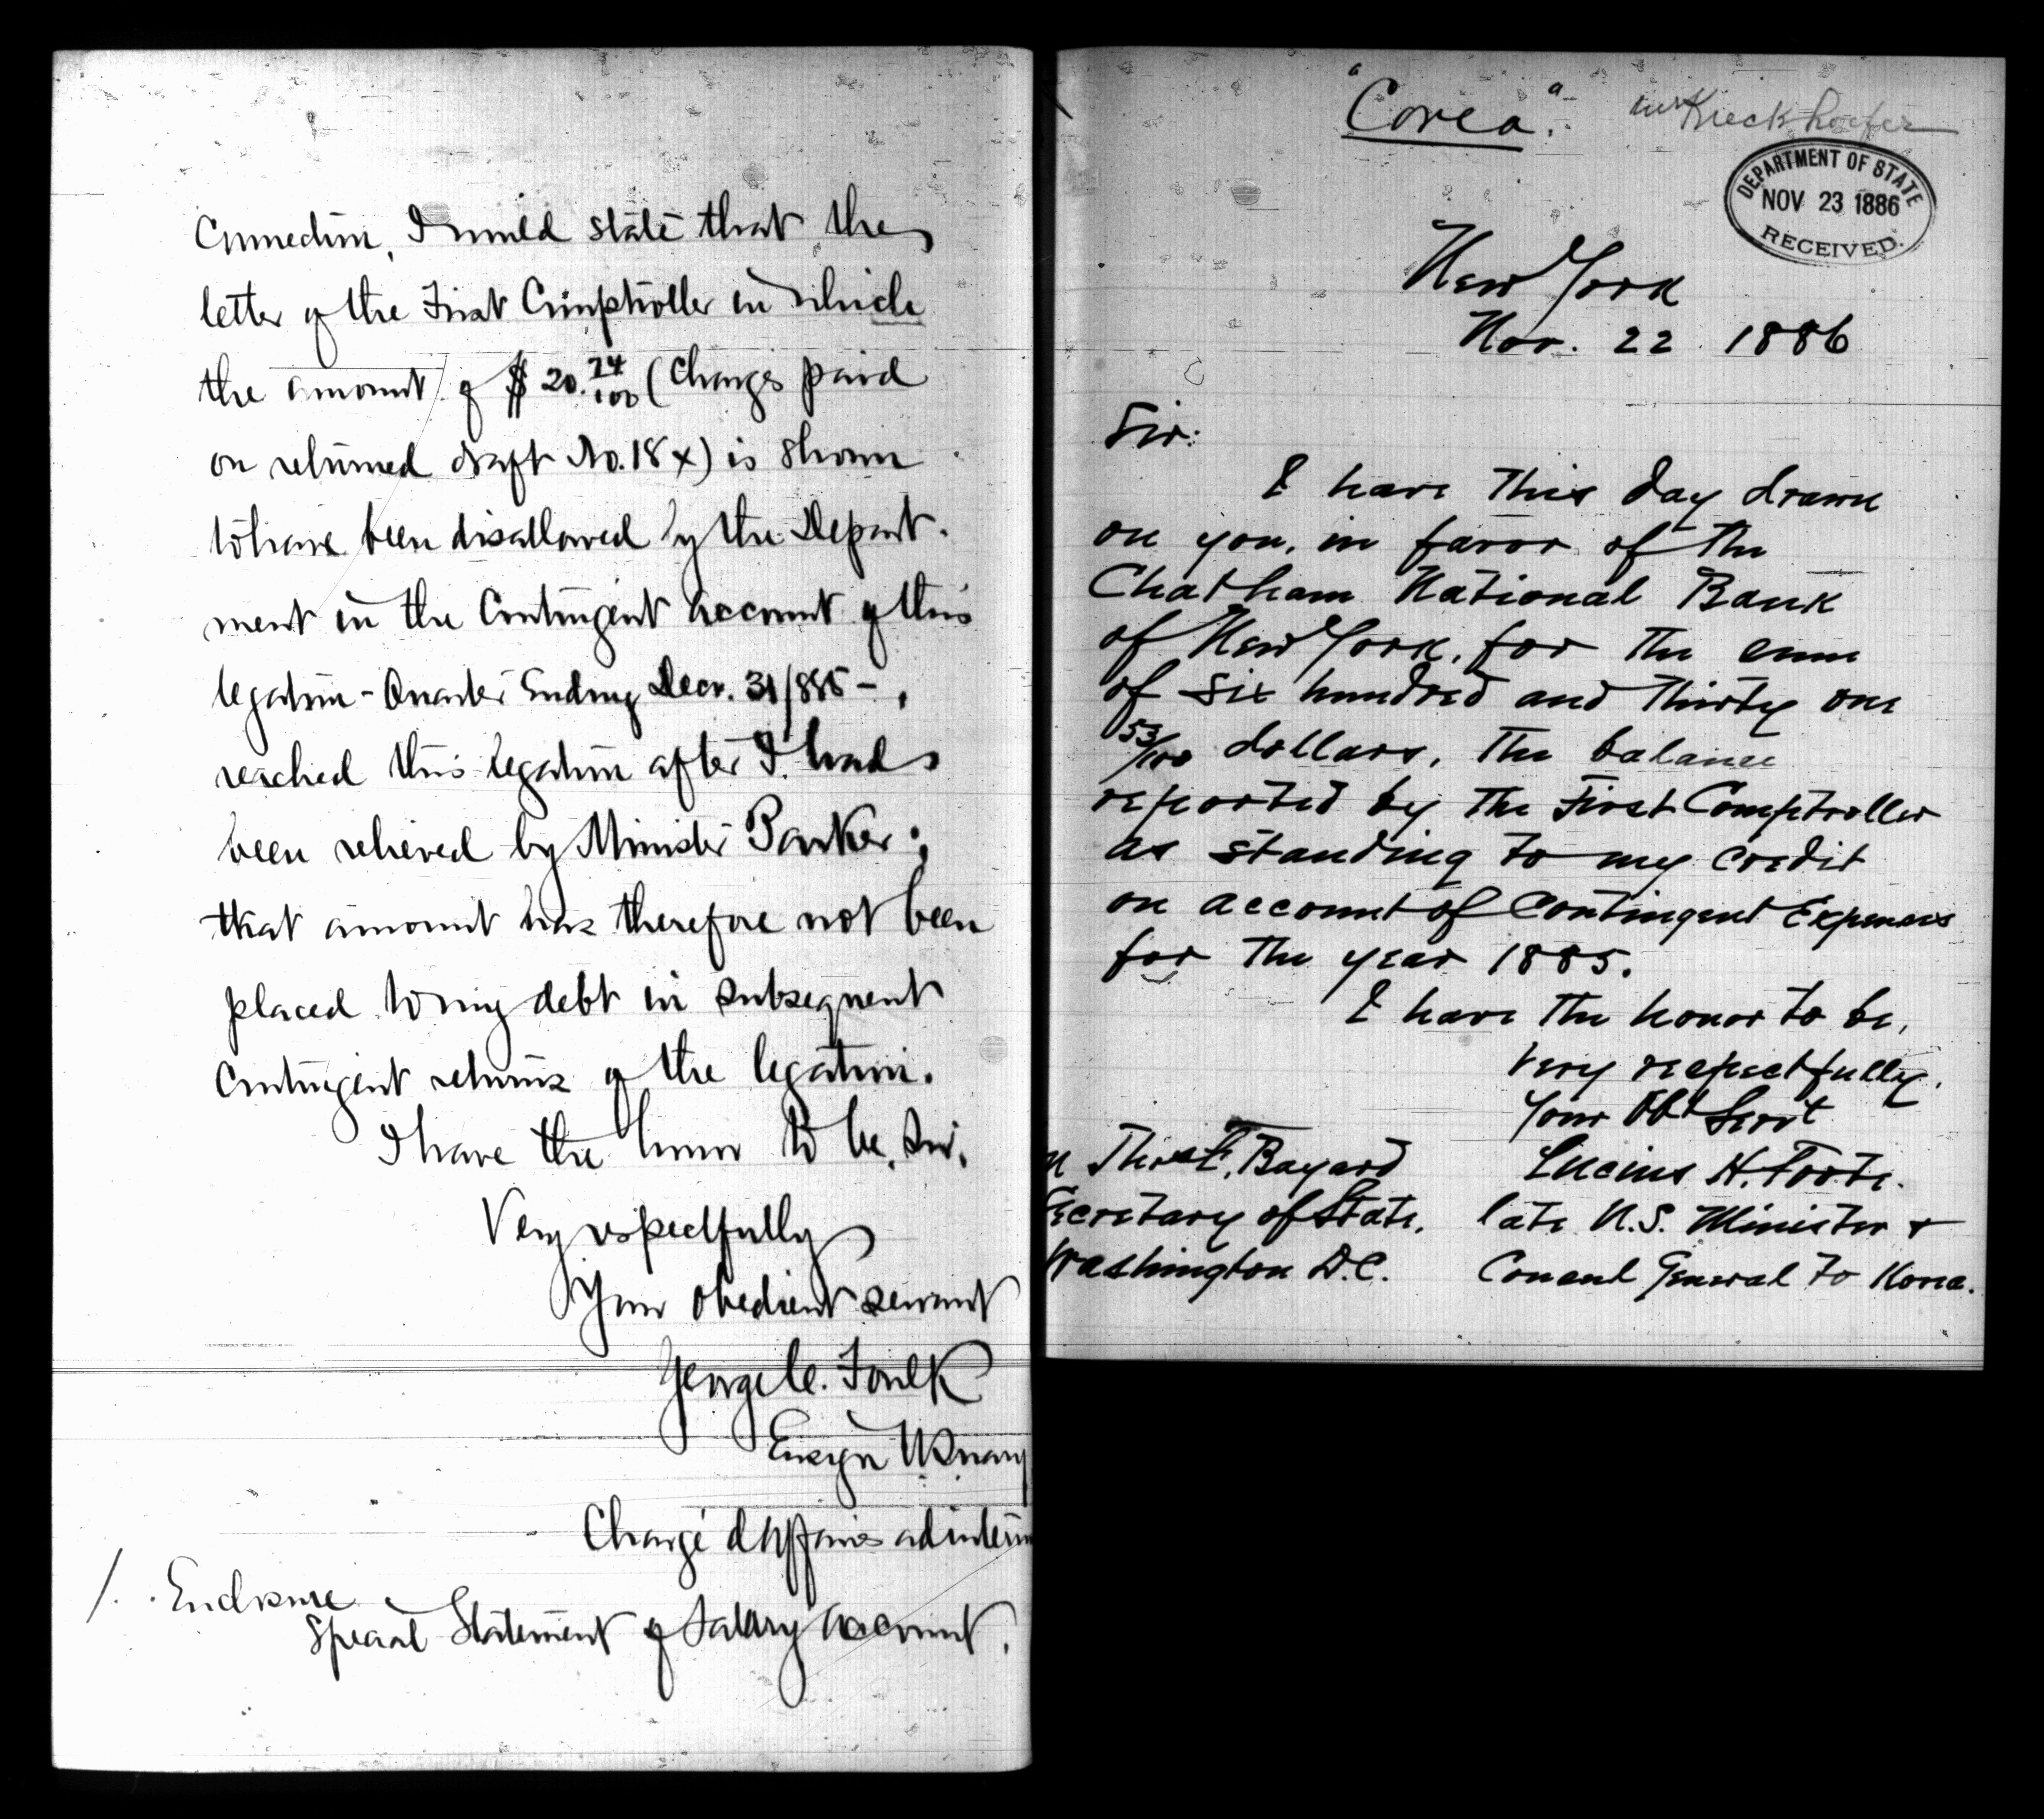 Connection, I would state that the
letter of the First Comptroller in which
the amount of $20.24/100 (Charges paid
on returned draft No. 18 x) is shown
to have been disallowed by the Depart-
ment in the Contingent Account of this
legation - Quarter Ending Decr. 31/885 - ,
reached this legation after I had
been relieved by Minister Parker;
that amount has therefore not been
placed to my debt in subsequent
Contingent returns of the legation.
I have the honor to be, Sir,
Very respectfully
Your obedient servant
George C. Foulk
Ensign U.S. Navy
Chargé d'Affaires ad interim
1. Enclosure
Special Statement of Salary Account.
"Corea."
Mr Kieckhoefer
DEPARTMENT OF STATE
NOV 23 1886
RECEIVED.
New York
Nov. 22 1886
Sir:
I have this day drawn
on you, in favor of the
Chatham National Bank
of New York, for the sum
of six hundred and thirty one
53/100 dollars, the balance
reported by the First Comptroller
as standing to my credit
on account of Contingent Expenses
for the year 1885.
I have the honor to be,
very respectfully,
Your Obt Servt
Lucius H. Foote.
late U.S. Minister &
Consul General to Korea.
Thos F. Bayard
Secretary of State,
Washington D.C.